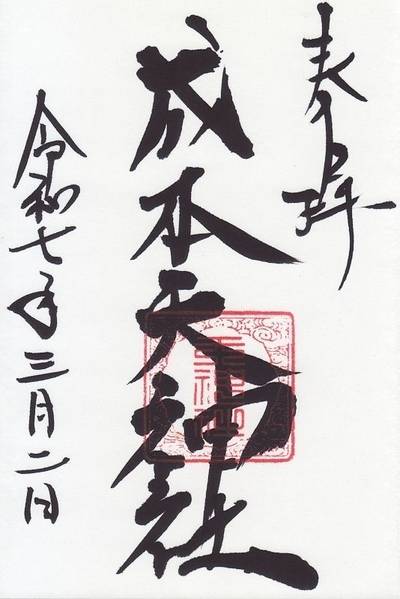 奉拝
成木天神社
令和七年三月二日